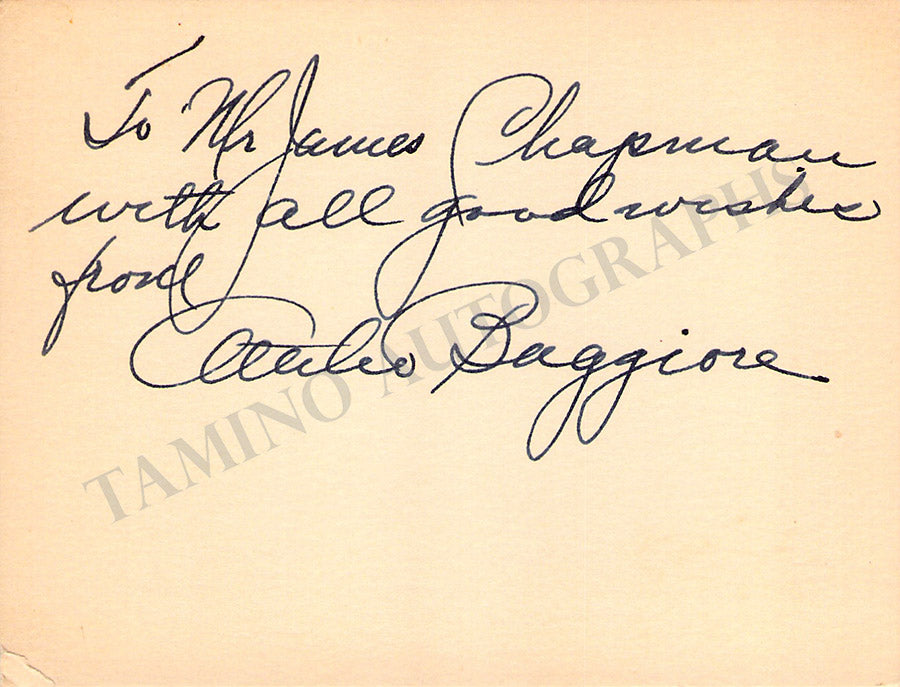 To Mr James Chapman
with all good wishes
from
Attilio Baggiore
TAMINO AUTOGRAPHS